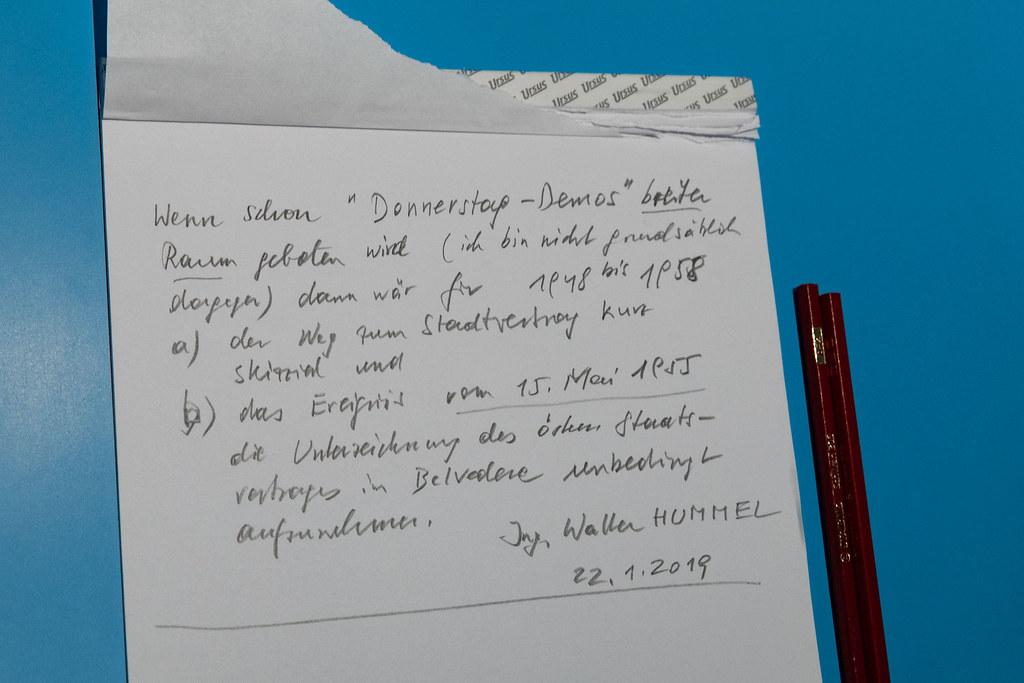 Ursus Ursus Ursus Ursus Ursus Ursus Ursus
Ursus Ursus Ursus Ursus Ursus
Wenn schon "Donnerstag-Demos" breiter
Raum geboten wird (ich bin nicht grundsätzlich
dagegen) dann wär für 1948 bis 1958
a) der Weg zum Stadtvertrag kurz
skizziert und
b) das Ereignis vom 15. Mai 1955
die Unterzeichnung des österr. Staats-
vertrages in Belvedere unbedingt
aufzunehmen.
Ing. Walter HUMMEL
22.1.2019